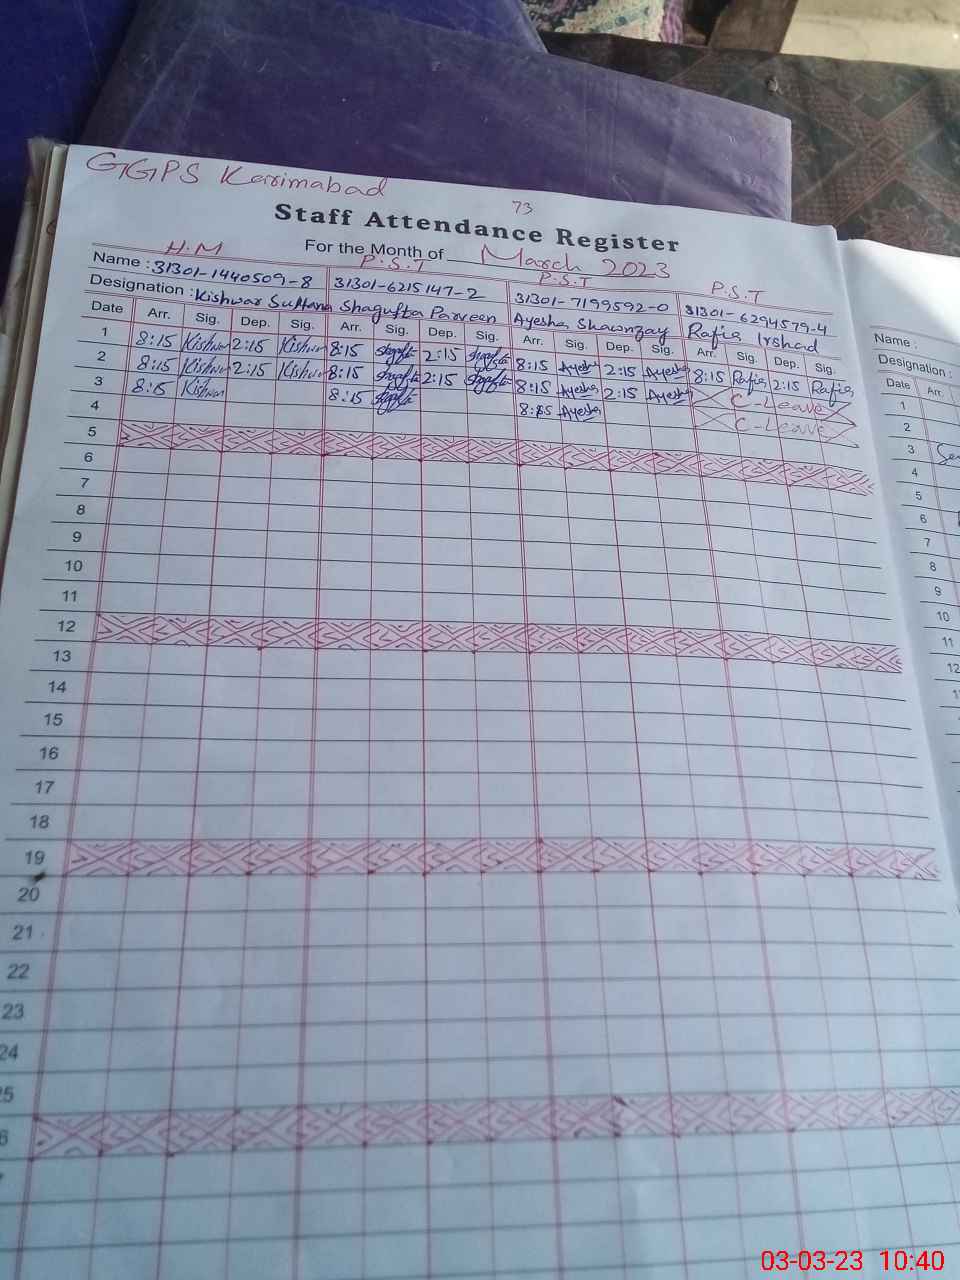 GGPS Karimabad
73
Staff Attendance Register
For the Month of March 2023
H.M P.S.T P.S.T P.S.T
Name : 31301-1440509-8 31301-6215147-2 31301-7199592-0 31301-6294579-4
Designation : Kishwar Sultana Shagufta Parveen Ayesha Shawnzay Rafia Irshad
Date Arr. Sig. Dep. Sig. Arr. Sig. Dep. Sig. Arr. Sig. Dep. Sig. Arr. Sig. Dep. Sig.
1 8:15 Kishwar 2:15 Kishwar 8:15 Shagufta 2:15 Shagufta 8:15 Ayesha 2:15 Ayesha 8:15 Rafia 2:15 Rafia
2 8:15 Kishwar 2:15 Kishwar 8:15 Shagufta 2:15 Shagufta 8:15 Ayesha 2:15 Ayesha C-Leave
3 8:15 Kishwar 8:15 Shagufta 8:15 Ayesha C-Leave
4
5
6
7
8
9
10
11
12
13
14
15
16
17
18
19
20
21
22
23
24
25
Name :
Designation :
Date Arr.
1
2
3
4
5
6
7
8
9
10
11
12
03-03-23 10:40